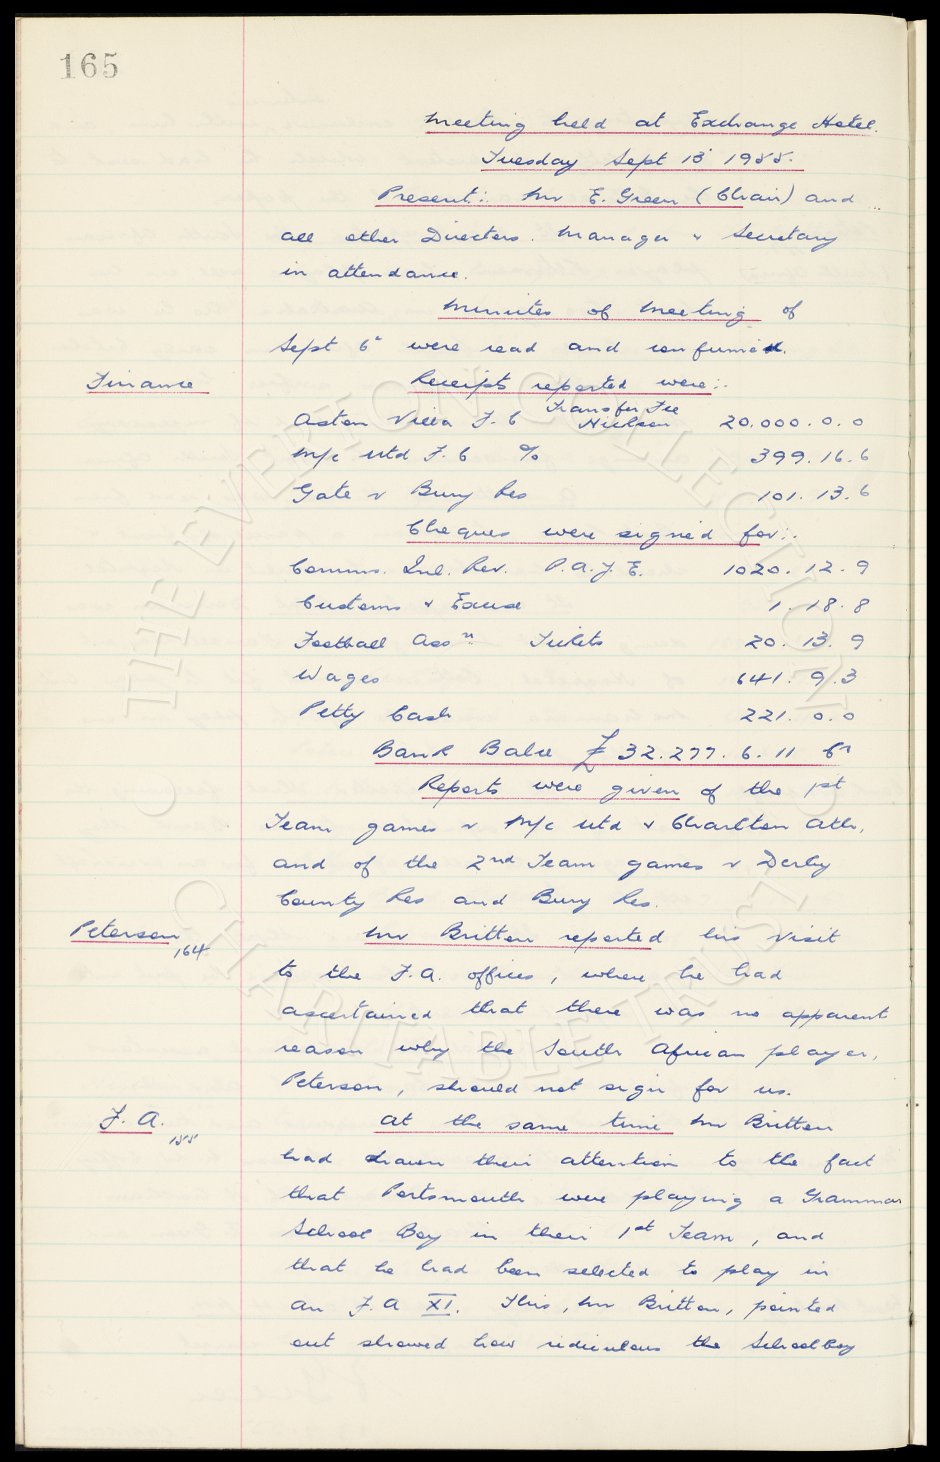 165
Meeting held at Exchange Hotel.
Tuesday Sept 13th 1955.
Present:. Mr E. Green (Chair) and
all other Directors. Manager & Secretary
in attendance.
Minutes of Meeting of
Sept 6th were read and confirmed.
Finance
Receipts reported were:.
Aston Villa F.C Transfer Fee Nielson 20.000.0.0
M/c Utd F.C % 399.16.6
Gate v Bury Res 101.13.6
Cheques were signed for:.
Comms. Inl. Rev. P.A.Y.E. 1020.12.9
Customs & Excise 1.18.8
Football Assn Tickets 20.13.9
Wages 641.9.3
Petty Cash 221.0.0
Bank Balce £32.277.6.11 Cr
Reports were given of the 1st
Team games v M/c Utd & Charlton Ath,
and of the 2nd Team games v Derby
County Res and Bury Res.
Peterson 164
Mr Britton reported his visit
to the F.A. offices, where he had
ascertained that there was no apparent
reason why the South African player,
Peterson, should not sign for us.
F.A. 155
At the same time Mr Britton
had drawn their attention to the fact
that Portsmouth were playing a Grammar
School Boy in their 1st Team, and
that he had been selected to play in
an F.A XI. This, Mr Britton, pointed
out showed how ridiculous the Schoolboy
THE EVERTON COLLECTION
CHARITABLE TRUST